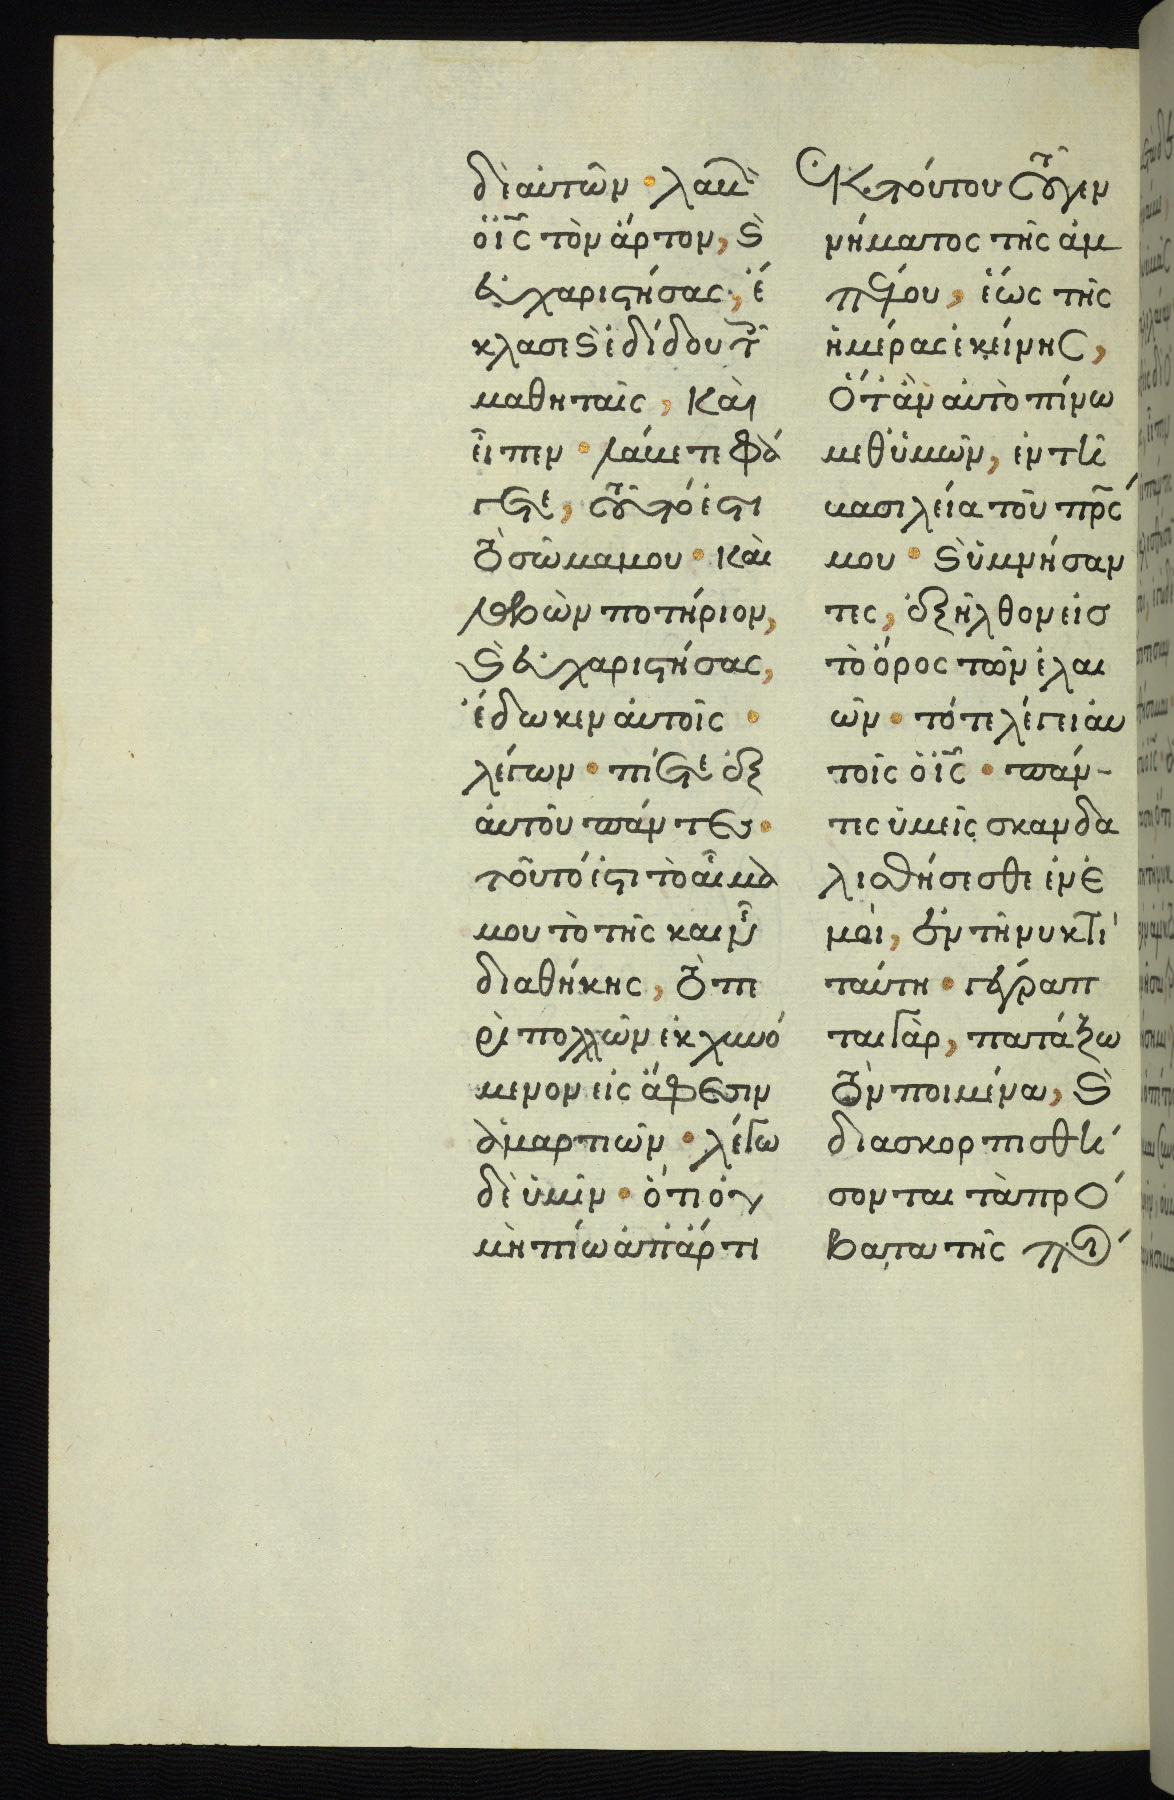 δὲ αὐτῶν · λαβὼν
ὁ ἰς τὸν ἄρτον, καὶ
εὐχαριστήσας, ἔ
κλασε καὶ ἐδίδου τοῖς
μαθηταῖς, καὶ
εἶπεν · λάβετε φά
γετε, τοῦτό ἐστι
τὸ σῶμα μου · καὶ
λαβὼν ποτήριον,
καὶ εὐχαριστήσας,
ἔδωκεν αὐτοῖς ·
λέγων · πίετε ἐξ
αὐτοῦ πάντες ·
τοῦτό ἐστι τὸ αἷμα
μου τὸ τῆς καινῆς
διαθήκης, τὸ πε
ρὶ πολλῶν ἐκχυνό
μενον εἰς ἄφεσιν
ἁμαρτιῶν · λέγω
δὲ ὑμῖν · ὅτι οὐ
μὴ πίω ἀπάρτι
ἐκ τούτου τοῦ γεν
νήματος τῆς ἀμ
πέλου, ἕως τῆς
ἡμέρας ἐκείνης,
ὅταν αὐτὸ πίνω
μεθ ὑμῶν, ἐν τῇ
βασιλεία τοῦ πρς
μου · καὶ ὑμνήσαν
τες, ἐξῆλθον εἰσ
τὸ ὄρος τῶν ἐλαι
ῶν · τότε λέγει αὐ
τοῖς ὁ ἰς · πάν-
τες ὑμεῖς σκανδα
λισθήσεσθε ἐν ἐ
μοὶ, ἐν τῇ νυκτὶ
ταύτη · γέγραπ
ται γὰρ, πατάξω
τὸν ποιμένα, καὶ
διασκορπισθή
σονται τὰ πρό
βατα τῆς ποί